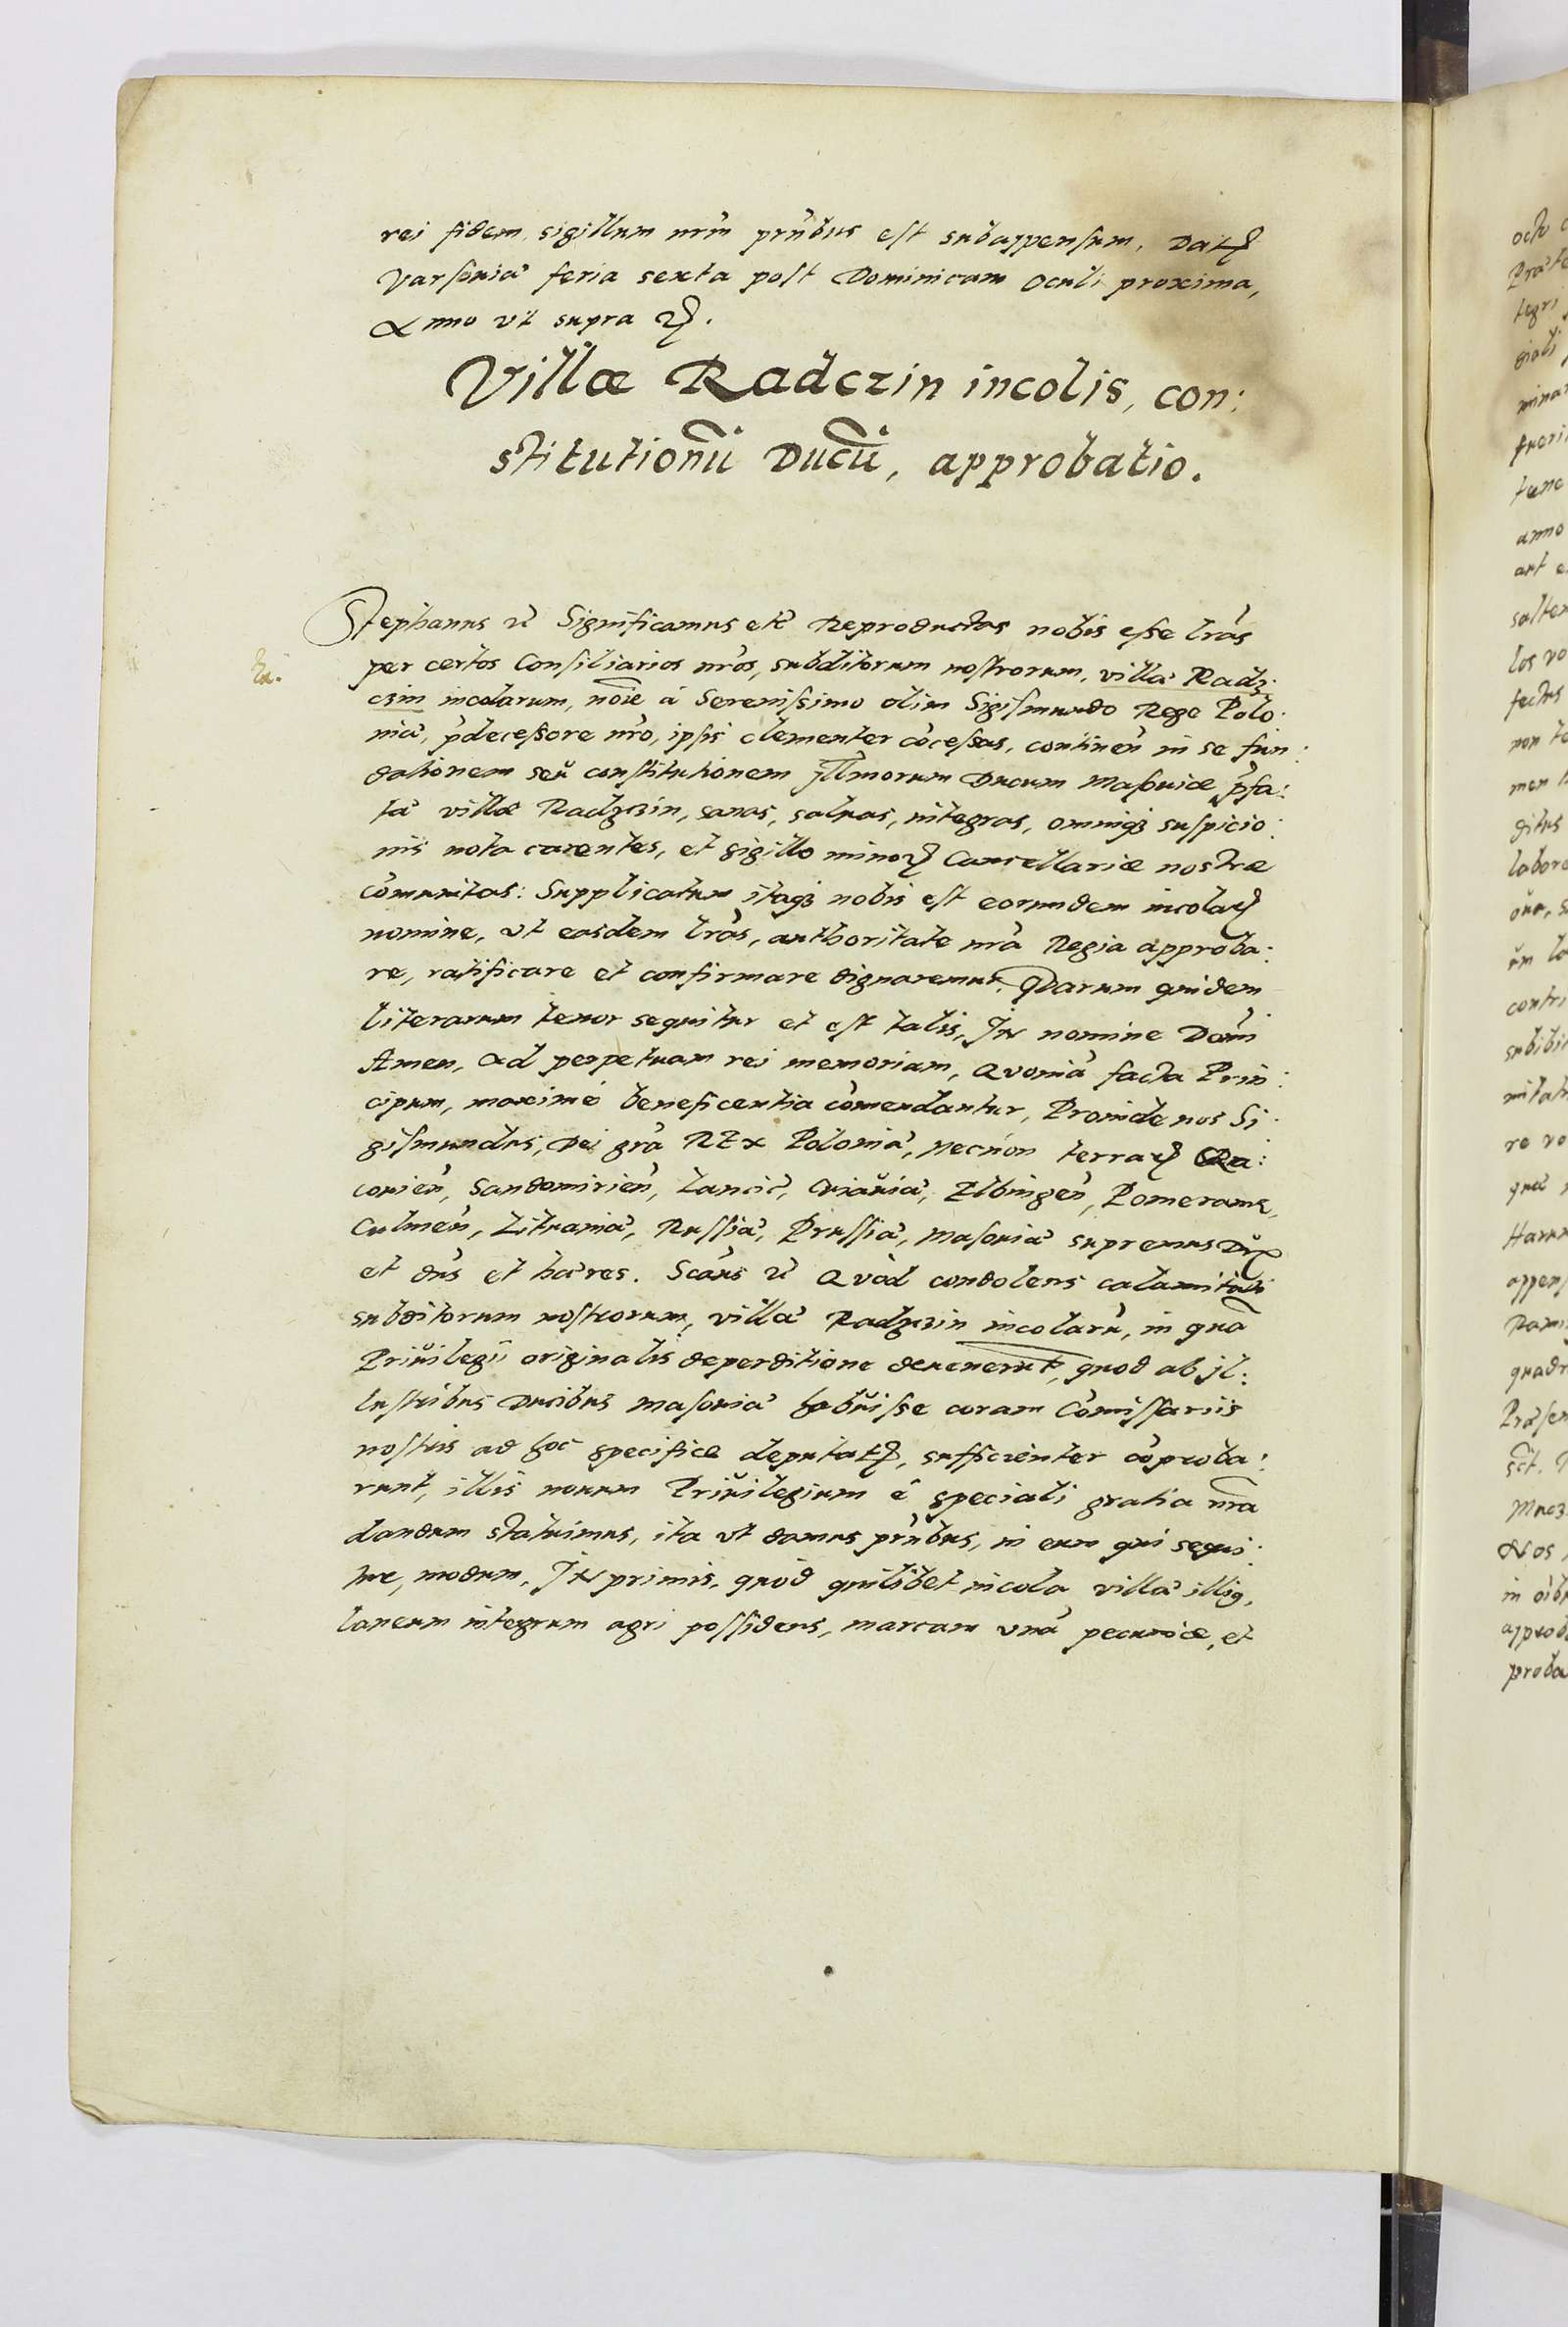 rei fidem, sigillum nrm̃ prñtibus est subappensum. Datꝫ
Varsouiæ feria sexta post Dominicam Oculi proxima,
Anno vt supra ꝛc.
Villæ Radczin incolis, con:
stitutionũ Ducũ, approbatio.
Stephanus ꝛc Significamus etc Reproductas nobis esse lrãs
per certos Consiliarios nrõs, subditorum nostrorum, villæ Radz:
czin incolarum, noĩe à Serenissimo olim Sigismundo Rege Polo:
niæ, p̃decessore nrõ, ipsis clementer cõcessas, continen̄ in se fun:
dationem seŭ constitutionem Illmorum Ducum Masouiæ p̃fa:
tæ villæ Radzczin, sanas, saluas, integras, omniqꝫ suspicio:
nis nota carentes, et sigillo minoꝝ Cancellariæ nostræ
cõmunitas: Supplicatum itaqꝫ nobis est eorundem incolaꝝ
nomine, vt easdem lrãs, authoritate nrã Regia approba:
re, ratificare et confirmare dignaremur. Quarum quidem
literarum tenor sequitur et est talis, In nomine Domĩ
Amen, ad perpetuam rei memoriam, Quoniã facta Prin:
cipum, maximè beneficentia cõmendantur, Proinde nos Si:
gismundus, Dei grã REX Poloniæ, necnon terraꝝ Cra:
couien̄, Sandomirien̄, Lancic̄, Cuiauiæ, Elbingen̄, Pomeraniæ,
Culmen̄, Lituaniæ, Russiæ, Prussiæ, Masouiæ supremus Dŭx
et dñs et hæres. Scãus ꝛc Quòd condolens calamitati
subditorum nostrorum, villæ Radzczin incolarũ, in quã
Priŭilegij originalis deperditione deuenerũt, quod ab Il:
lustribus Ducibus Masouiæ habŭisse coram Cõmissariis
nostris ad hoc specificè deputatꝫ, sufficienter cõproba:
runt, illis nouum Priŭilegium è speciali gratia nrã
dandum statuimus, ita vt damus prñtibus, in eum qui sequi:
tur, modum. In primis, quòd quilibet incola villæ illiꝰ,
laneum integrum agri possidens, marcam vnã pecuniæ, et